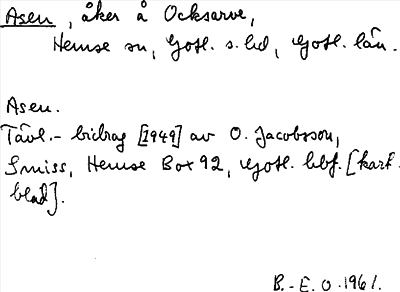 Asen, åker å Ocksarve,
Hemse sn, Gotl. s. hd, Gotl. län.
Asen.
Tävl.- bidrag [1949] av O. Jacobsson,
Smiss, Hemse Box 92, Gotl. bbf. [kart-
blad].
B.- E. O. 1961.